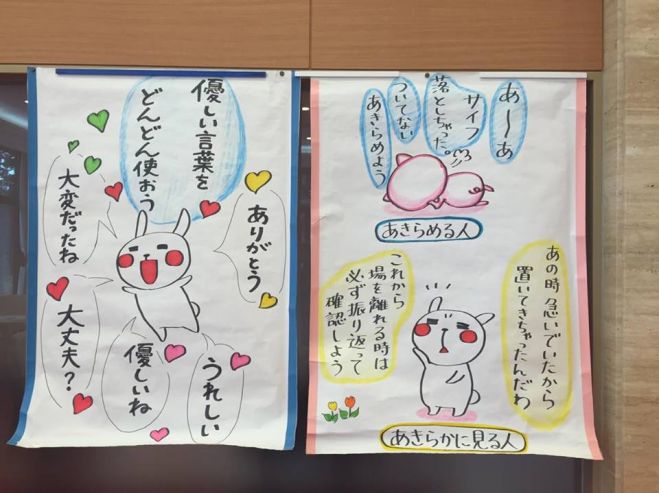 優しい言葉を
どんどん使おう
ありがとう
大変だったね
大丈夫？
優しいね
うれしい
あ〜あ
サイフ
落としちゃった。
ついてない
あきらめよう
あきらめる人
あの時急いでいたから
置いてきちゃったんだわ
これから
場を離れる時は
必ず振り返って
確認しよう
あきらかに見る人